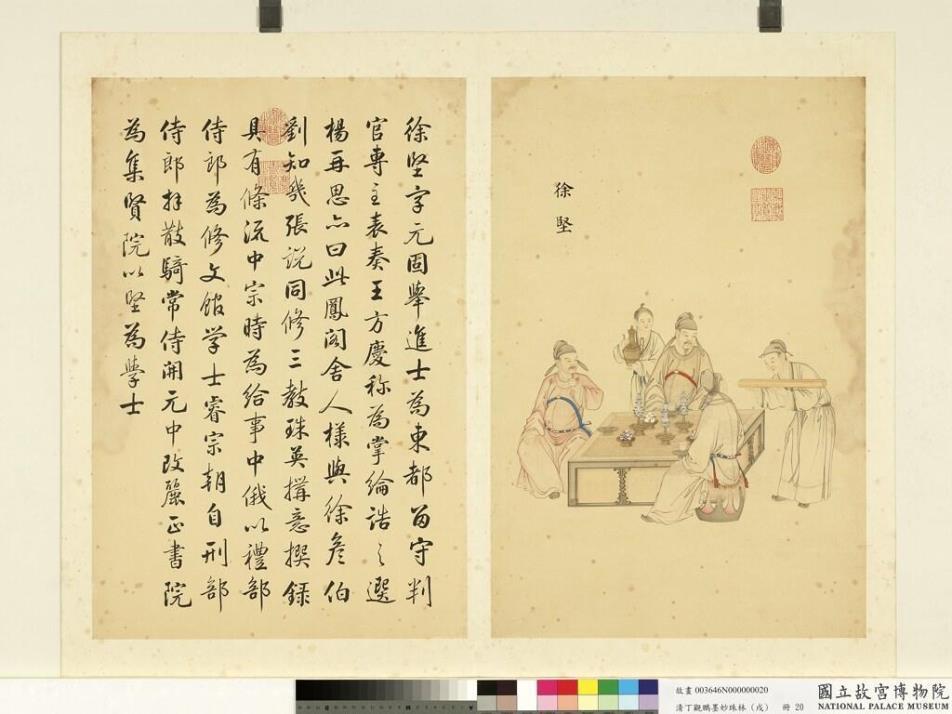 徐堅
徐堅字元固舉進士為東都留守判
官專主表奏王方慶称為掌綸誥之選
楊再思亦曰此鳳閣舍人樣與徐彥伯
劉知幾張説同修三教珠英搆意撰録
具有條流中宗時為給事中俄以禮部
侍郎為修文館学士睿宗朝自刑部
侍郎拜散騎常侍開元中改麗正書院
為集賢院以堅為學士
故畫 003646N000000020
清丁觀鵬墨妙珠林(戌) 冊 20
國立故宮博物院
NATIONAL PALACE MUSEUM